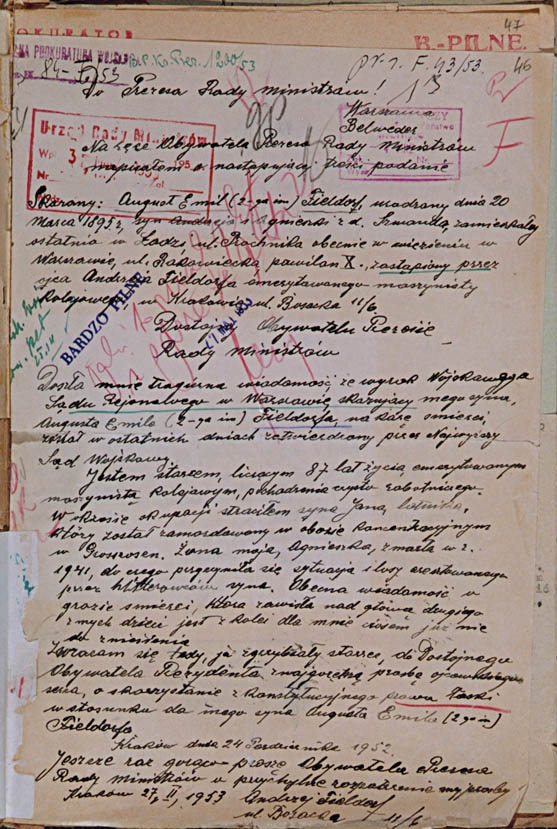 47
B.-PILNE.
46
PROKURATURA WOJSK
B.P.K. Prez. 1200/53
pr. 7. F. 93/53.
Do Prezesa Rady Ministrów!
Warszawa
Belweder
Urząd Rady Ministrów
Na ręce Obywatela Prezesa Rady Ministrów
napisałem o następującej treści podanie
Skazany: August Emil (2-ga im) Fieldorf, urodzony dnia 20
Marca 1895 r, syn Andrzeja i Agnieszki z d. Szwanda zamieszkały
ostatnio w Łodzi, ul. Próchnika obecnie w więzieniu w
Warszawie, ul. Rakowiecka pawilon X, zastąpiony przez
ojca Andrzeja Fieldorfa emerytowanego maszynisty
kolejowego w Krakowie ul. Bosacka 11/6.
BARDZO PILNE
Dostojny Obywatelu Prezesie
Rady Ministrów
Doszła mnie tragiczna wiadomość że wyrok Wojskowego
Sądu Rejonowego w Warszawie skazujący mego syna,
Augusta Emila (2-ga im) Fieldorfa, na karę śmierci,
został w ostatnich dniach zatwierdzony przez Najwyższy
Sąd Wojskowy.
Jestem starcem, liczącym 87 lat życia, emerytowanym
maszynistą kolejowym, pochodzenia czysto robotniczego.
W okresie okupacji straciłem syna Jana, lotnika,
który został zamordowany w obozie koncentracyjnym
w Grossrosen. Żona moja, Agnieszka, zmarła w r.
1941, do czego przyczyniła się sytuacja i losy aresztowanego
przez hitlerowców syna. Obecna wiadomość o
grozie śmierci, która zawisła nad głową drugiego
z mych dzieci jest z kolei dla mnie ciosem już nie
do zniesienia
Zwracam się tedy, ja zgrzybiały starzec, do Dostojnego
Obywatela Prezydenta z najgorętszą prośbą
o skorzystanie z konstytucyjnego prawa łaski
w stosunku do mego syna Augusta Emila (2ga im)
Fieldorfa
Kraków dnia 24 Października 1952.
Jeszcze raz gorąco proszę Obywatela Prezesa
Rady Ministrów o przychylne rozpatrzenie mej prośby
Kraków 27, II, 1953 Andrzej Fieldorf
ul. Bosacka 11/6